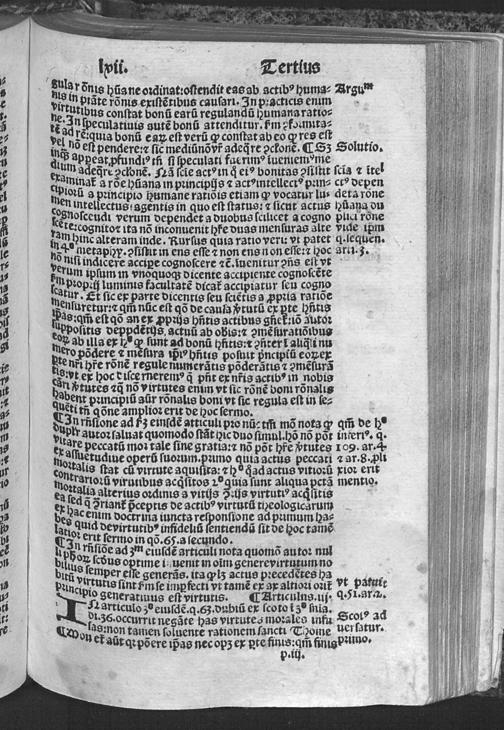 lvii. Tertius
gular rõnis hũa ne ordinat: ostendit eas ab actibꝰ huma-
nis in prãte rõnis existẽtibus causari. In practicis enim
virtutibus constat bonũ earũ regulandũ humana ratio-
ne. In speculatiuis autẽ bonũ attenditur.
tẽ ad rẽ: quia bonũ eaꝝ est verũ ꝙ constat ab eo ꝙ res est
vel nõ est pendere: ⁊ sic mediũ nõ vr̃ adeq̃re ꝓclonẽ. ¶ Sꝫ
inq̃s appeat, ꝓfundiꝰ tñ si speculati fuerimꝰ iueniemꝰ me
dium adeq̃re ꝓclonẽ. Nã scie actꝰ in q̃ eiꝰ bonitas ꝯsistit
examinat̃ a rõe hũana in principijs ⁊ actꝰ intellectꝰ prin-
cipiorũ a principio humane rationis etiam ꝙ vocatur lu-
men intellectus agentis in quo est status: ⁊ sicut actus
cognoscẽdi verum dependet a duobus scilicet a cogno
scẽte: cognito: ita nõ inconuenit hr̃e duas mensuras alte
ram hinc alteram inde. Rursus quia ratio veri: vt patet
in 4º metaphy. ꝯsistit in ens esse ⁊ non ens non esse: ⁊ hoc
nõ nisi indicere accipe cognoscere ⁊ c̃. iuenitur ꝓñs est vt
verum ipsum in vnoquoqꝫ dicente accipiente cognoscẽte
fm prop ijs luminis facultatẽ dicat̃ accipiatur seu cogno
scatur. Et sic ex parte dicentis seu sciẽtis a ꝓpria ratiõe
mensuretur: ⁊ qm̃ nũc est q̃õ de causa ꝟtutũ ex pte hñtis
ipas: qm̃ est q̃õ an ex ꝓprijs hñtis actibus gñent̃: iõ autor
suppositis depẽdẽtijs actuũ ab obis: ⁊ ꝯmẽsurationibus
eoꝝ ab illa ex hº ꝙ sunt ad bonũ hñtis: ⁊ q̃nter l aliq̃li nu
mero põdere ⁊ mẽsura ipiꝰ hñtis posuit pñcipiũ eoꝝ ex
pte nr̃i hr̃e rõnẽ regule numerãtis põderãtis ⁊ ꝯmẽsurã
tis: vt ex hoc disceñeremꝰ ꝙ pñt ex nr̃is actibꝰ in nobis
cãri ꝟtutes ⁊ q̃ nõ virtutes enim vt sic rõnẽ boni rõnalis
habent principiũ aũt rõnalis boni vt sic regula est in se-
quẽti tñ q̃õne amplior erit de hoc sermo.
¶ In rñsione ad pꝫ eiusdẽ articuli pro nũc tm̃ mõ nota ꝙ
duplr̃ autor saluat quomodo stãt hic duo simul. hõ nõ põt
vitare peccatũ mortale sine gratia: ⁊ nõ põt hr̃e ꝟtutes
ex assuetudine operũ suorum. primo quia actus peccati
mortalis stat cũ virtute aquisita: ⁊ hº q̃ad actus vitiorũ
contrariorũ virutibus acq̃sitos 2º quia sunt aliqua pctã
mortalia alterius ordinis a vitijs ꝯrijs virtutiꝰ acq̃sitis
ea sed q̃ ꝯriant̃ pceptis de actibꝰ virtutũ theologicarum
ex hac enim doctrina iuncta responsione ad primum ha-
bes quid de virtutibꝰ infideliũ sentiendũ sit de hoc tamẽ
latior erit sermo in q̃õ. 65. a secundo.
¶ In rñsiõe ad 3ᵐ eiusdẽ articuli nota quomõ autor nul
li phoꝝ scdꝰs optime iuenit in oĩm genere virtutum no
bilius semper esse generãs. ita ꝙ lꝫ actus precedẽtes ha
bitũ virtutis sint fm se imꝑfecti vt tamẽ ex ar altiori oriũt̃
principio generatiuus est virtutis. ¶ Articulus. iij.
IN articulo 3º eiusdẽ. q. 63. dubiũ ex scoto i 3º snĩa.
di. 36. occurrit negãte has virtutes morales infu
sas: non tamen soluente rationem sancti Thome
¶ Mon ⁊ aũt q̃r põere ipas nec opꝫ ex pte finis: qm̃ finis
p. iij.
Arguᵐ
Solutio.
scia ⁊ itel
ctꝰ depen
det a rõne
hũana vn
vide ipm
q. sequen.
art. 3.
qm̃ de hº
inferiꝰ. q.
109. ar. 4.
⁊ ar. 8. pli
xior erit
mentio.
vt patuit
q. 51. ar. 2.
Scotꝰ ad
uersatur.
primo.